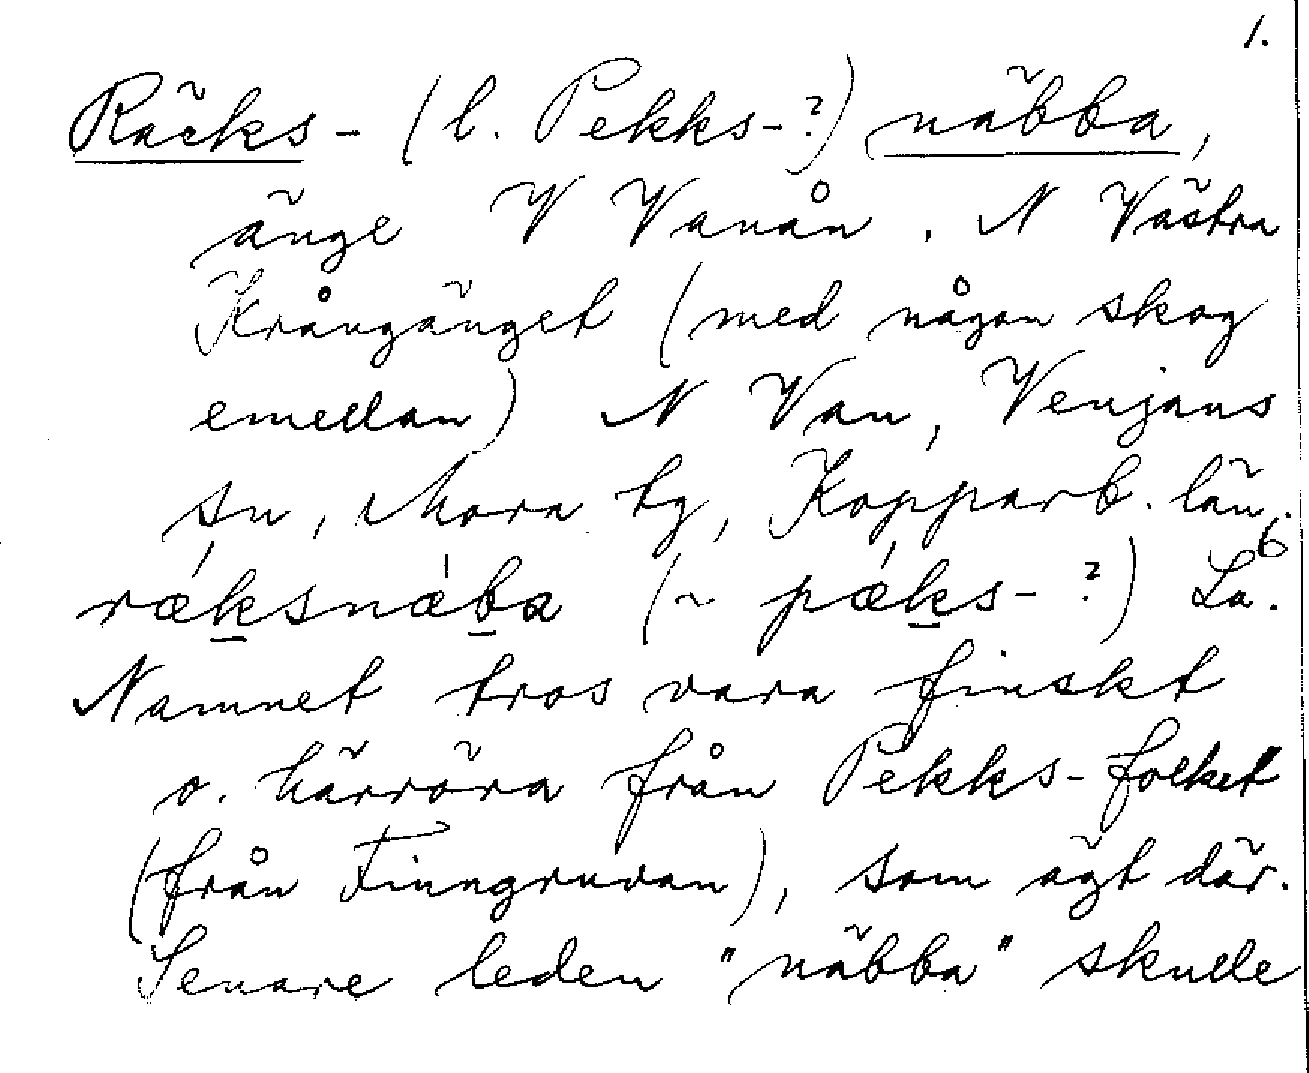 1.
Räcks- (l. Pekks-?) näbba,
änge V Vanån. N Västra
Krångänget (med någon skog
emellan) N Van, Venjans
sn, Mora tg, Kopparb. län.
rǽksnǽba (~ pǽks-?) La. 6
Namnet tros vara finskt
o. härröra från Pekks-folket
(från Finngruvan), som ägt där.
Senare leden "näbba" skulle